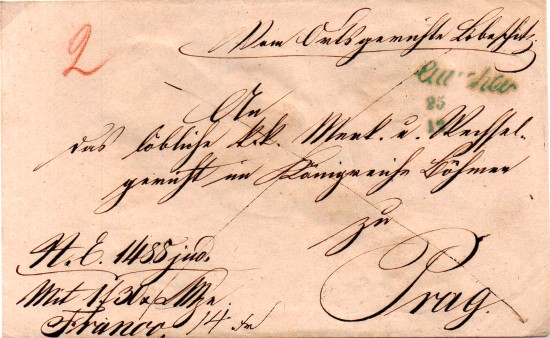 2
Vom Ortsgerichte
25
12
An
das löbliche k.k. Merk. u. Wechsel-
gericht im Königreiche Böhmen
zu
Prag.
N. E. 1488 jud.
Mit
Franco.